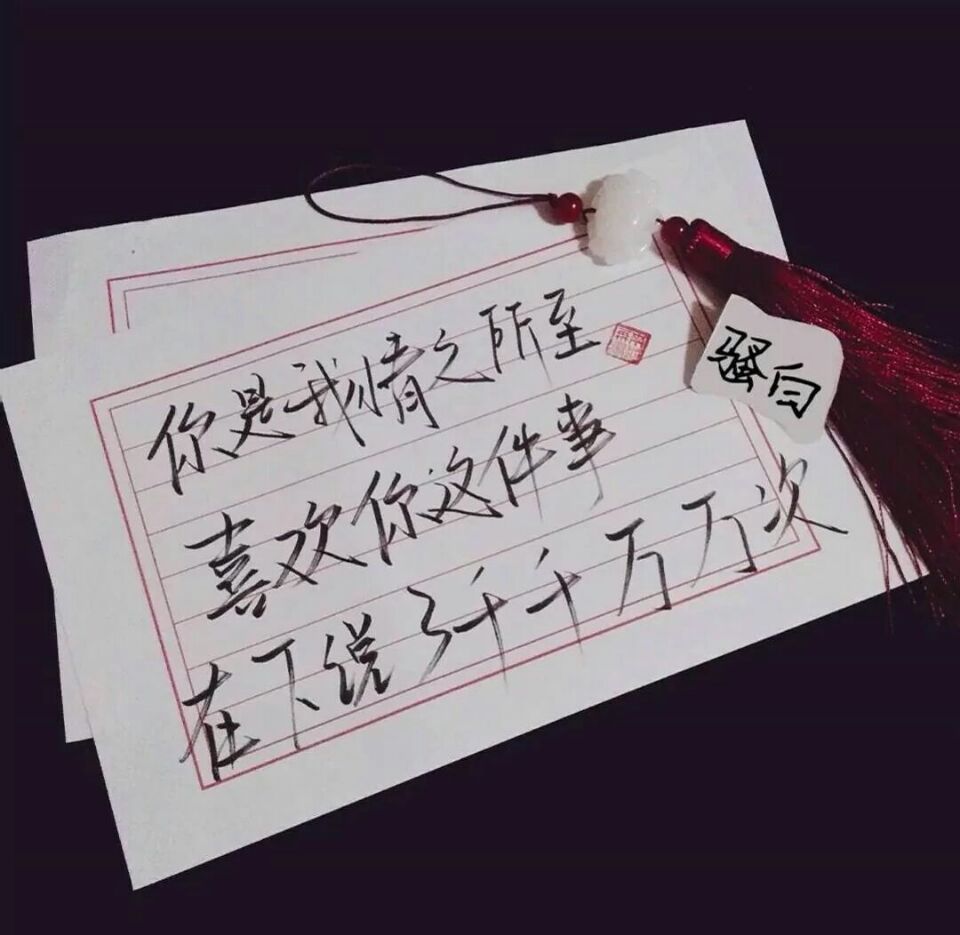 你是我情之所至
喜欢你这件事
在下说了千千万万次
骚白